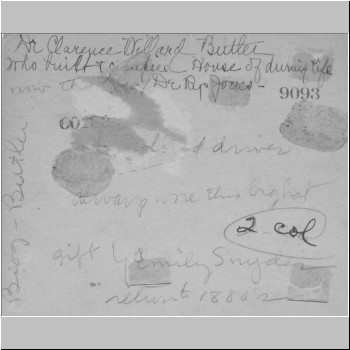 Dr Clarence Willard Butler
who built & occupied House of during life
now the Dr Rip Jones -
9093
driver
always wore this high hat
2 col
gift of Emily Snyder
return to 1880's
Biog - Butler